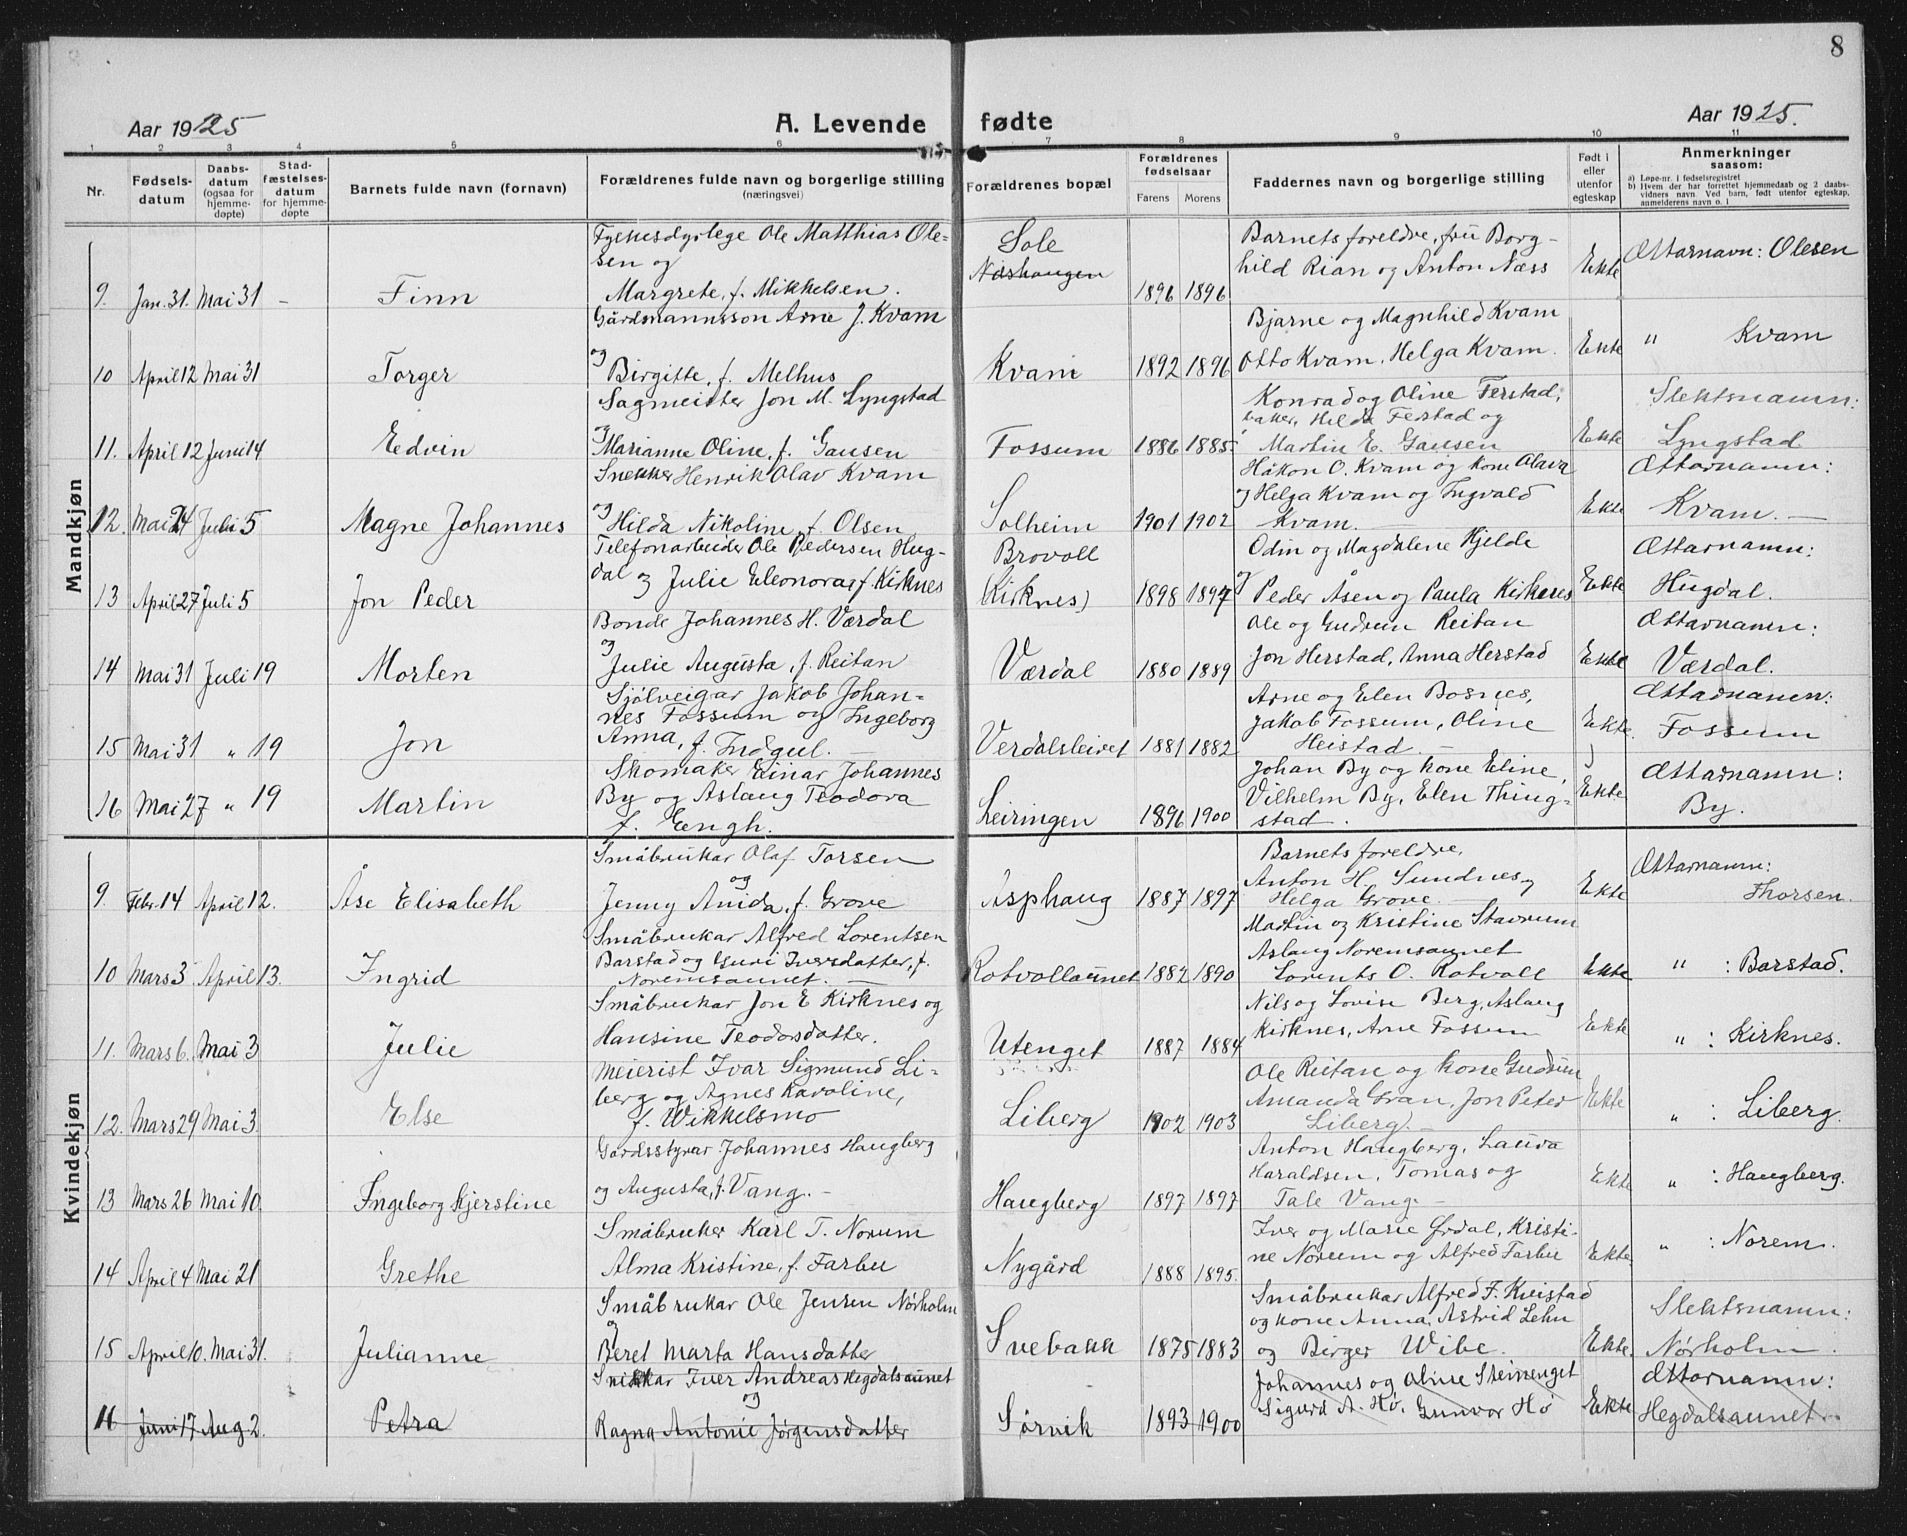 8
Aar 1925
A. Levende fødte
Aar 1925.
1 2 3 4 5 6 7 8 9 10 11
Nr.
Fødsels-datum
Daabs-datum (ogsaa for hjemme-døpte)
Stad-fæstelses-datum for hjemme-døpte
Barnets fulde navn (fornavn)
Forældrenes fulde navn og borgerlige stilling
(næringsvei)
Forældrenes bopæl
Forældrenes fødselsaar
Farens Morens
Faddernes navn og borgerlige stilling
Født i eller utenfor egteskap
Anmerkninger
saasom:
a) Løpe-nr. i fødselsregistret
b) Hvem der har forrettet hjemmedaab og 2 daabs-
vidners navn. Ved barn, født utenfor egteskap,
anmelderens navn o. l
Mandkjøn
9. Jan. 31. Mai 31 – Finn
Fylkesdyrlege Ole Matthias Ole-
sen og
Margrete, f. Mikkelsen.
Sole
Neshaugen
1896 1896
Barnets foreldre, fru Borg-
hild Rian og Anton Næss
Ekte
Ættarnavn: Olesen
10 April 12 Mai 31 Torger
Gårdmannsson Arne J. Kvam
og
Birgitte, f. Melhus
Kvam 1892 1896
Bjarne og Magnhild Kvam
Otto Kvam, Helga Kvam.
Ekte
" Kvam
11. April 12 Juni 14 Edvin
Sagmeister Jon M. Lyngstad
og
Marianne Oline, f. Gausen
Fossum 1886 1885.
Konrad og Oline Ferstad,
baker, Hilda Ferstad og
Martin E. Gausen
Ekte
Slektsnamn:
Lyngstad
12. Mai 24 Juli 5 Magne Johannes
Snekker Henrik Olav Kvam
og
Hilda Nikoline, f. Olsen
Solheim 1901 1902
Håkon O. Kvam og kone Olava
og Helga Kvam og Ingvald
Kvam.
Ekte
Ættarnamn:
Kvam.
13 April 27 Juli 5 Jon Peder
Telefonarbeider Ole Pedersen Hug-
dal og Julie Eleonora, f. Kirknes
Brovoll
(Kirknes) 1898 1897
Odin og Magdalene Hjelde
og Peder Åsen og Paula Kirknes
Ekte
Ættarnamn:
Hugdal.
14 Mai 31 Juli 19 Morten
Bonde Johannes H. Værdal
og
Julie Augusta, f. Reitan
Værdal 1880 1889
Ole og Gudrun Reitan
Jon Herstad, Anna Herstad
Ekte
Ættarnamn:
Værdal.
15 Mai 31 " 19 Jon
Sjølveigar Jakob Johan-
nes Fossum og Ingeborg
Anna, f. Indgul.
Verdalsleiret 1881 1882
Arne og Elen Bosnes,
Jakob Fossum, Oline
Heistad.
Ekte.
Ættarnamn:
Fossum
16 Mai 27 " 19 Martin
Skomaker Einar Johannes
By og Aslaug Teodora
f. Engh.
Leiringen 1896 1900
Johan By og kone Eline,
Vilhelm By, Elen Thing-
stad.
Ekte
Ættarnamn:
By.
Kvindekjøn
9. Febr. 14 April 12. Åse Elisabeth
Småbrukar Olaf Torsen
og
Jenny Anida, f. Grove
Asphaug 1887 1897
Barnets foreldre,
Anton H. Sundnes og
Helga Grove.
Ekte
Ættarnamn:
Thorsen.
10 Mars 3 April 13. Ingrid
Småbrukar Alfred Lorentsen
Barstad og Guri Iversdatter, f.
Noremsaunet.
Rotvollaunet 1882 1890
Martin og Kristine Stavrum
Aslaug Noremsaunet
Lorents O. Rotvoll
Ekte
" : Barstad.
11. Mars 6. Mai 3 Julie
Småbrukar Jon E Kirknes og
Hansine Teodorsdatter.
Utenget 1887 1884
Nils og Lovise Berg, Aslaug
Kirknes, Arne Fossum
Ekte
" : Kirknes.
12. Mars 29 Mai 3. Else
Meierist Ivar Sigmund Li-
berg og Agnes Karoline,
f. Wikkelsmo
Liberg 1902 1903
Ole Reitan og kone Gudrun
Amanda Gran, Jon Peter
Liberg.
Ekte
" : Liberg.
13 Mars 26 Mai 10. Ingeborg Kjerstine
Gardsstyrar Johannes Haugberg
og Augusta, f. Vang.
Haugberg 1897 1897
Anton Haugberg, Laura
Haraldsen, Tomas og
Tale Vang.
Ekte
" : Haugberg.
14 April 4 Mai 21 Grethe
Småbruker Karl T. Norum
Alma Kristine, f. Farbu
Nygård 1888 1895.
Iver og Marie Ørdal, Kristi-
ne Norum og Alfred Farbu
Ekte
" : Norem.
15 April 10. Mai 31. Julianne
Småbrukar Ole Jensen Nørholm
og
Beret Marta Hansdatter
Svebakk 1875 1883
Småbrukar Alfred F. Kveistad
og kone Anna, Astrid Lehn
og Birger Wibe.
Ekte.
Slektsnamn:
Nørholm.
16 Juni 17 Aug 2. Petra
Snikkar Iver Andreas Hegdalsaunet
og
Ragna Antonie Jørgensdatter
Sørvik 1893 1900
Johannes og Oline Steinenget
Sigurd A. Hø, Gunvor Hø
Ekte
Ættarnamn:
Hegdalsaunet.